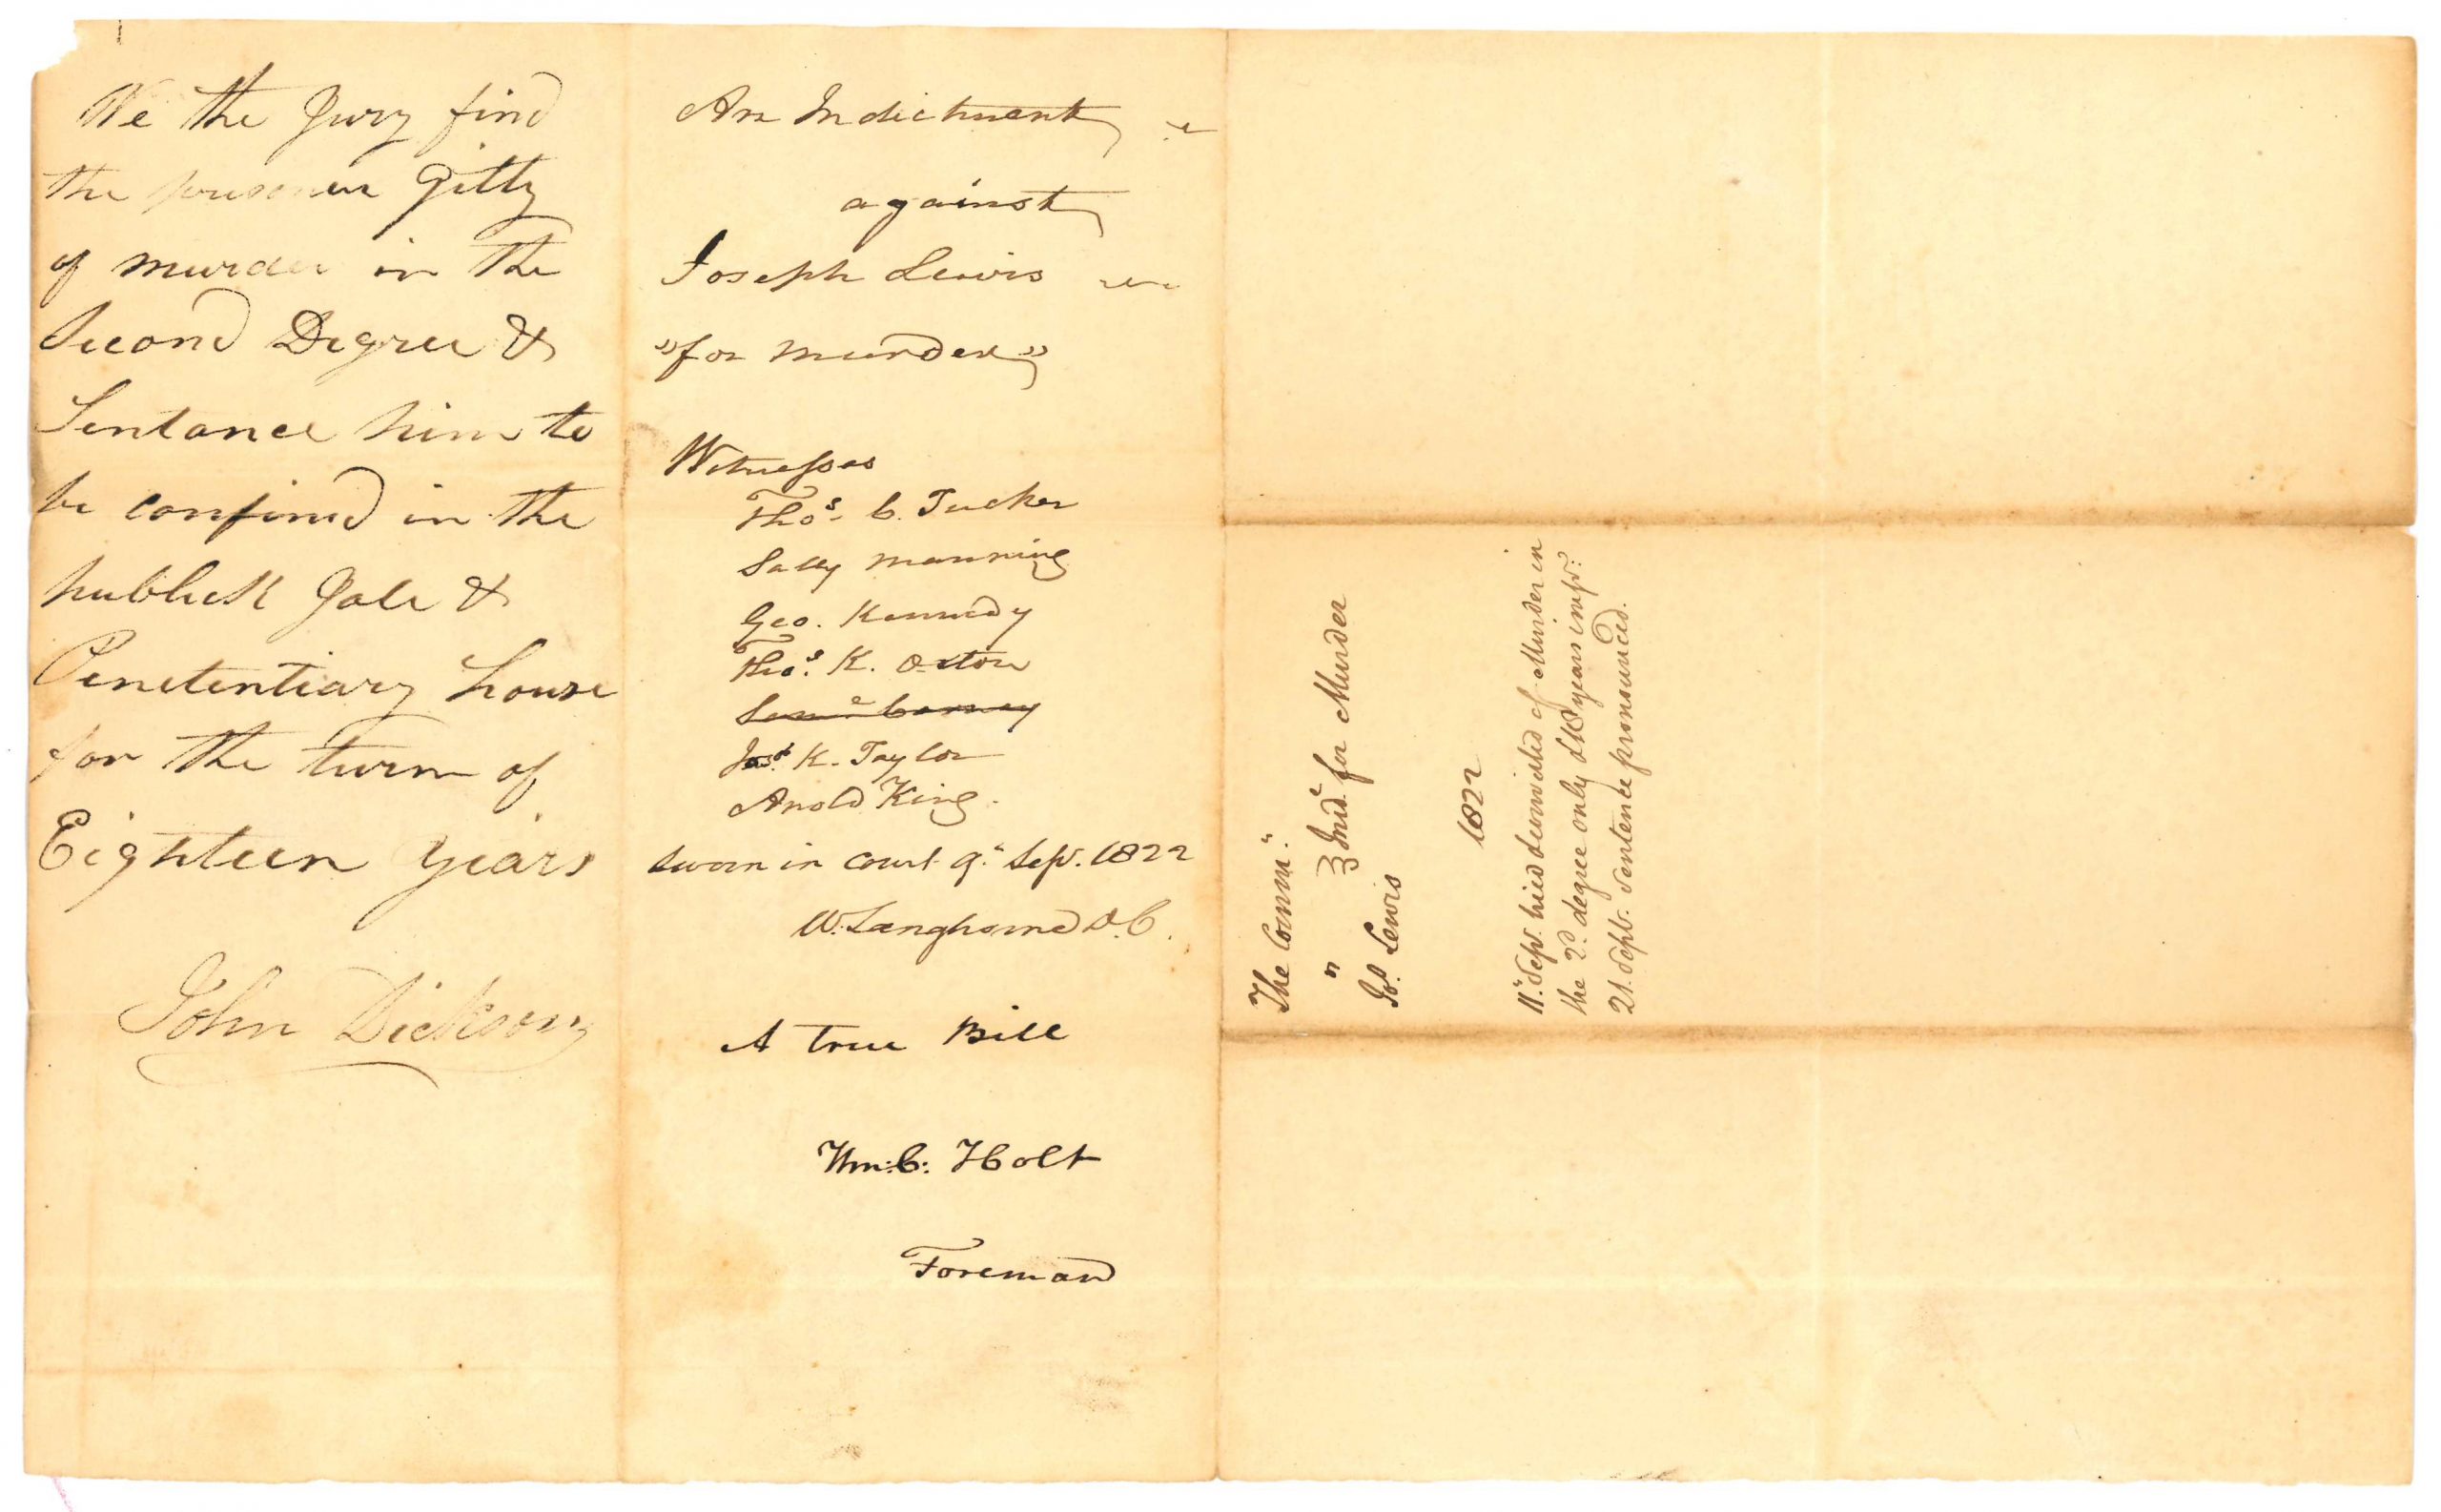 We the Jury find
the prisoner Gilty
of murder in the
Second Degree &
Sentance him to
be confined in the
publick Jale &
Penetentiary house
for the turm of
Eighteen years
John Dickson
An Indictment
against
Joseph Lewis
"for murder"
Witnesses
Thos. C. Tucker
Sally Manning
Geo. Kennedy
Thos. K. Oxton
Carney
Jas. K. Taylor
Arnold King.
Sworn in Court 9th Sepr. 1822
W. Langhorne D.C.
A true Bill
Wm: C: Holt
Foreman
The Comm:
"
Ind. for Murder
Jos. Lewis
1822
11th Sepr. tried & convicted of Murder in
the 2d. degree only & 18 years impr:
21. Sepbr. Sentence pronounced.